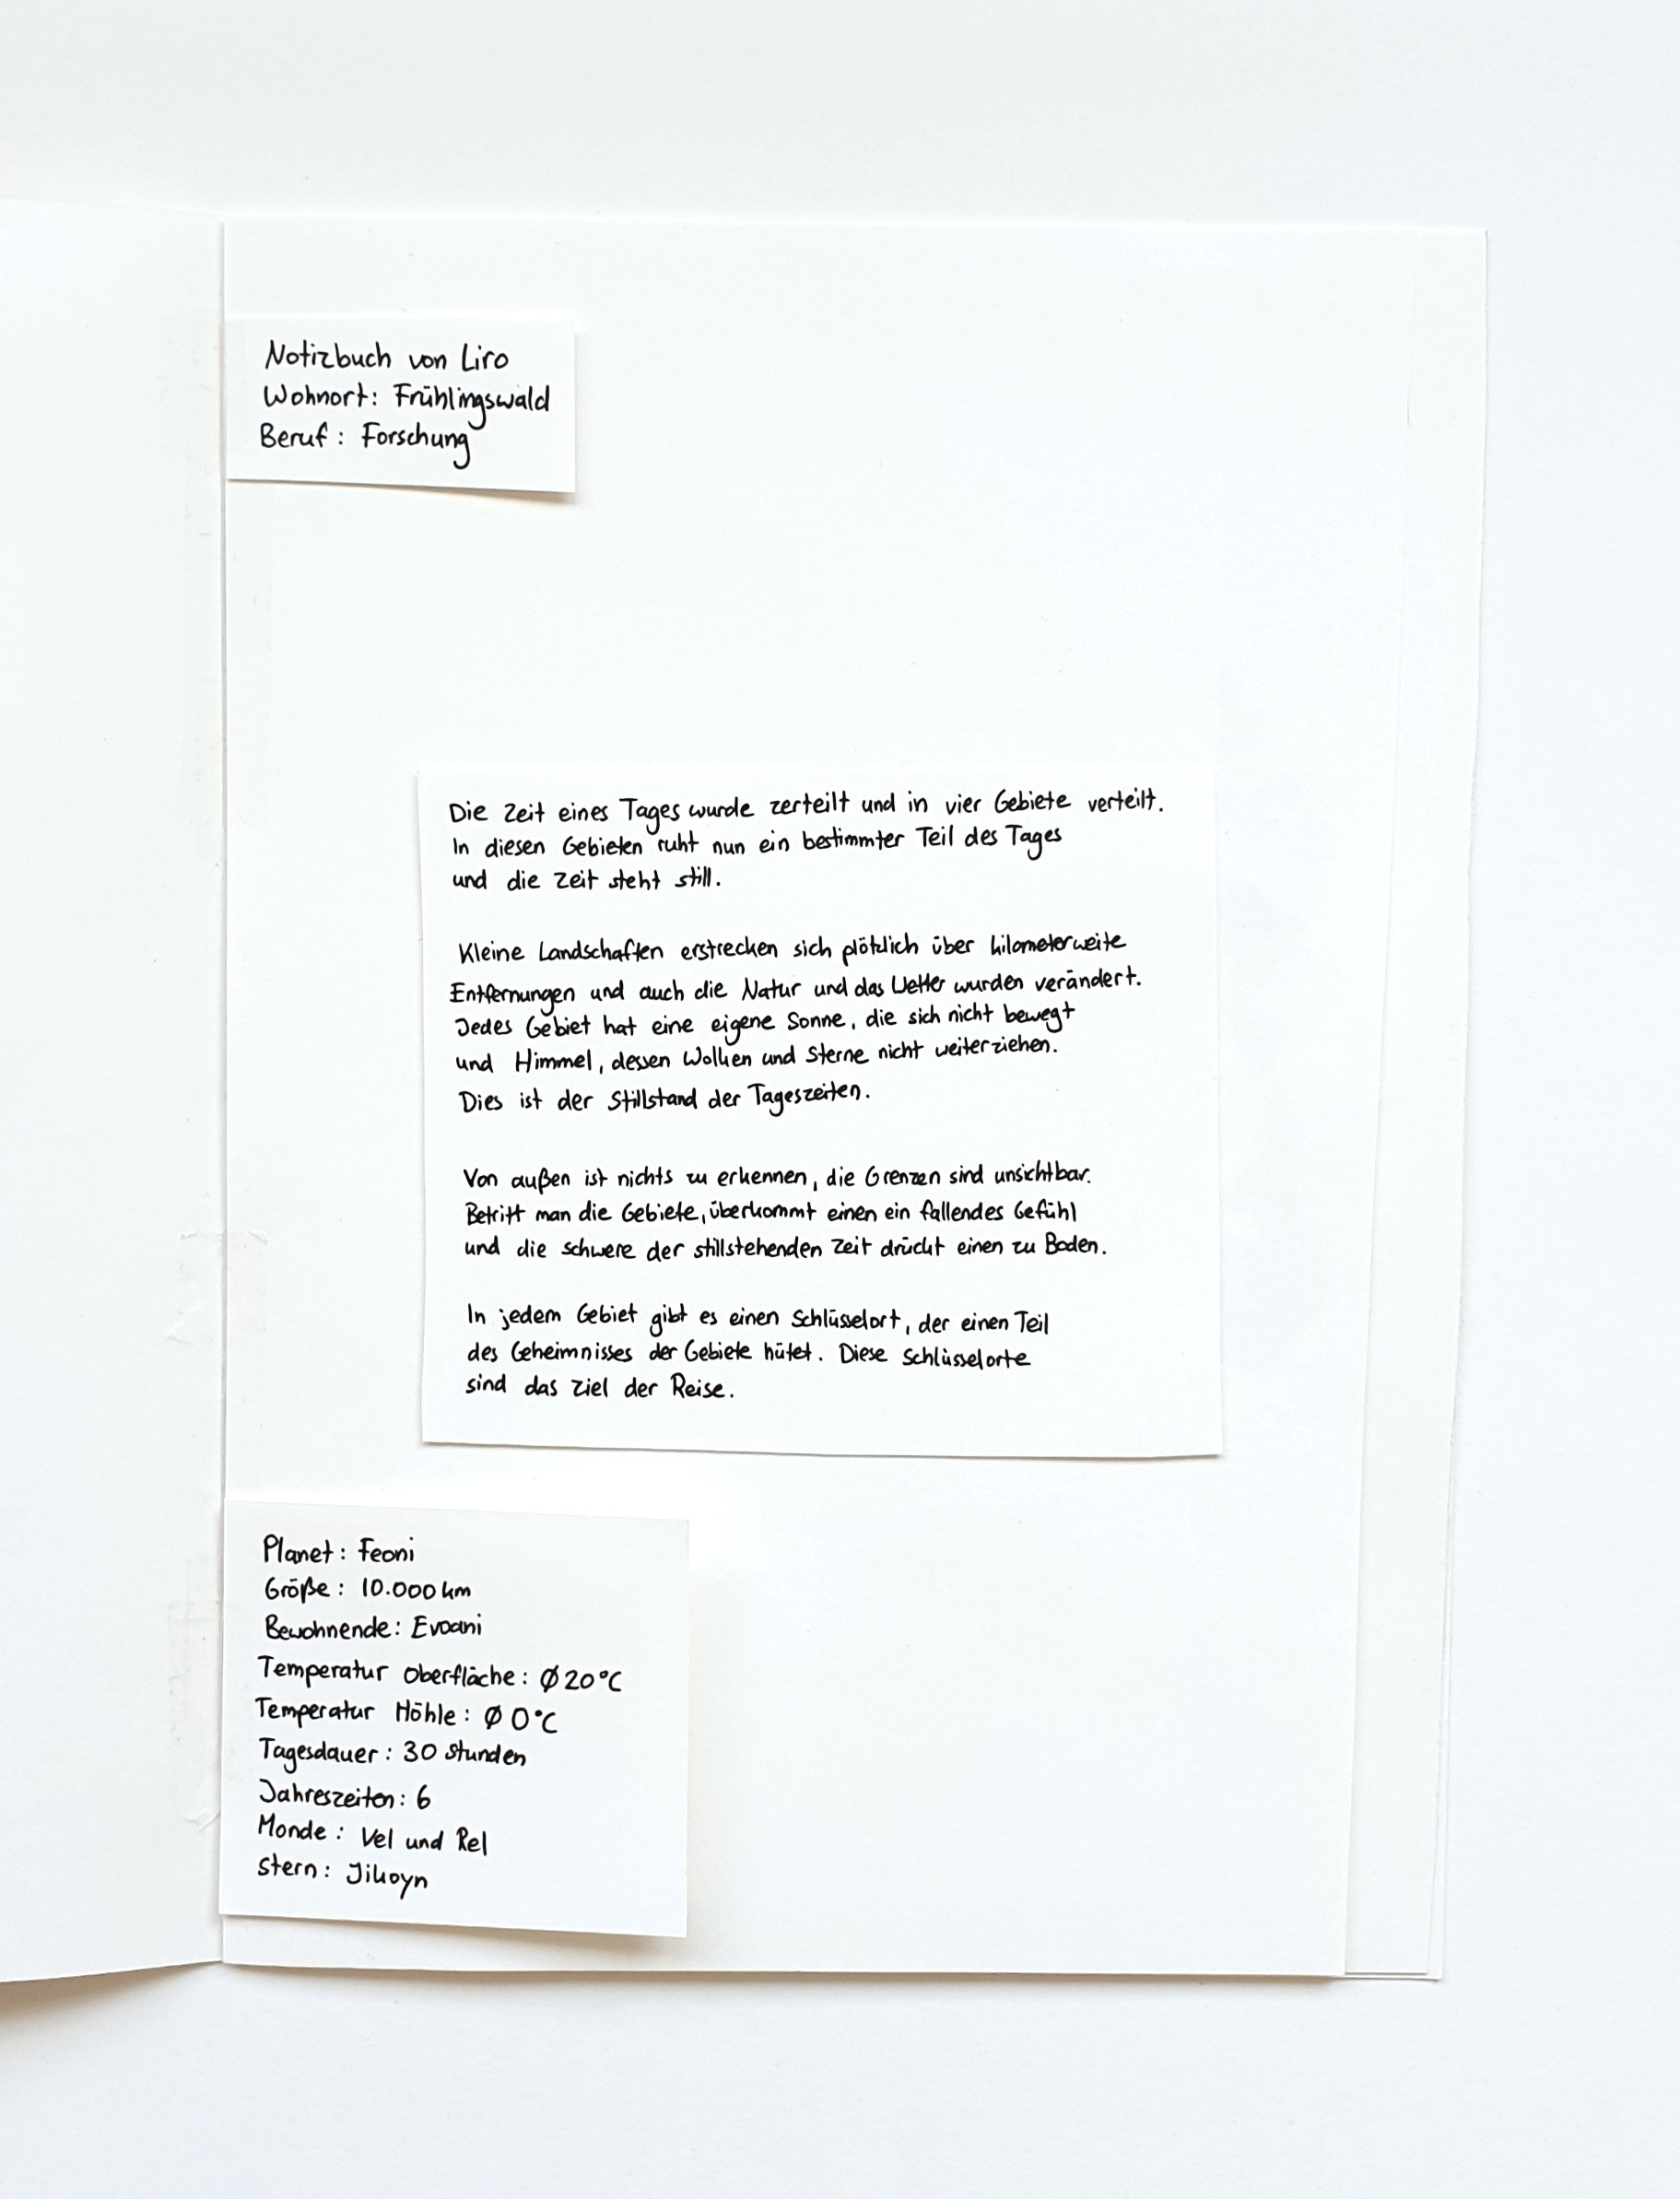 Notizbuch von Liro
Wohnort: Frühlingswald
Beruf: Forschung
Die Zeit eines Tages wurde zerteilt und in vier Gebiete verteilt.
In diesen Gebieten ruht nun ein bestimmter Teil des Tages
und die Zeit steht still.
Kleine Landschaften erstrecken sich plötzlich über kilometerweite
Entfernungen und auch die Natur und das Wetter wurden verändert.
Jedes Gebiet hat eine eigene Sonne, die sich nicht bewegt
und Himmel, dessen Wolken und Sterne nicht weiterziehen.
Dies ist der Stillstand der Tageszeiten.
Von außen ist nichts zu erkennen, die Grenzen sind unsichtbar.
Betritt man die Gebiete, überkommt einen ein fallendes Gefühl
und die schwere der stillstehenden Zeit drückt einen zu Boden.
In jedem Gebiet gibt es einen Schlüsselort, der einen Teil
des Geheimnisses der Gebiete hütet. Diese Schlüsselorte
sind das Ziel der Reise.
Planet: Feoni
Größe: 10.000 km
Bewohnende: Evoani
Temperatur Oberfläche: Ø 20°C
Temperatur Höhle: Ø 0°C
Tagesdauer: 30 Stunden
Jahreszeiten: 6
Monde: Vel und Rel
Stern: Jikoyn